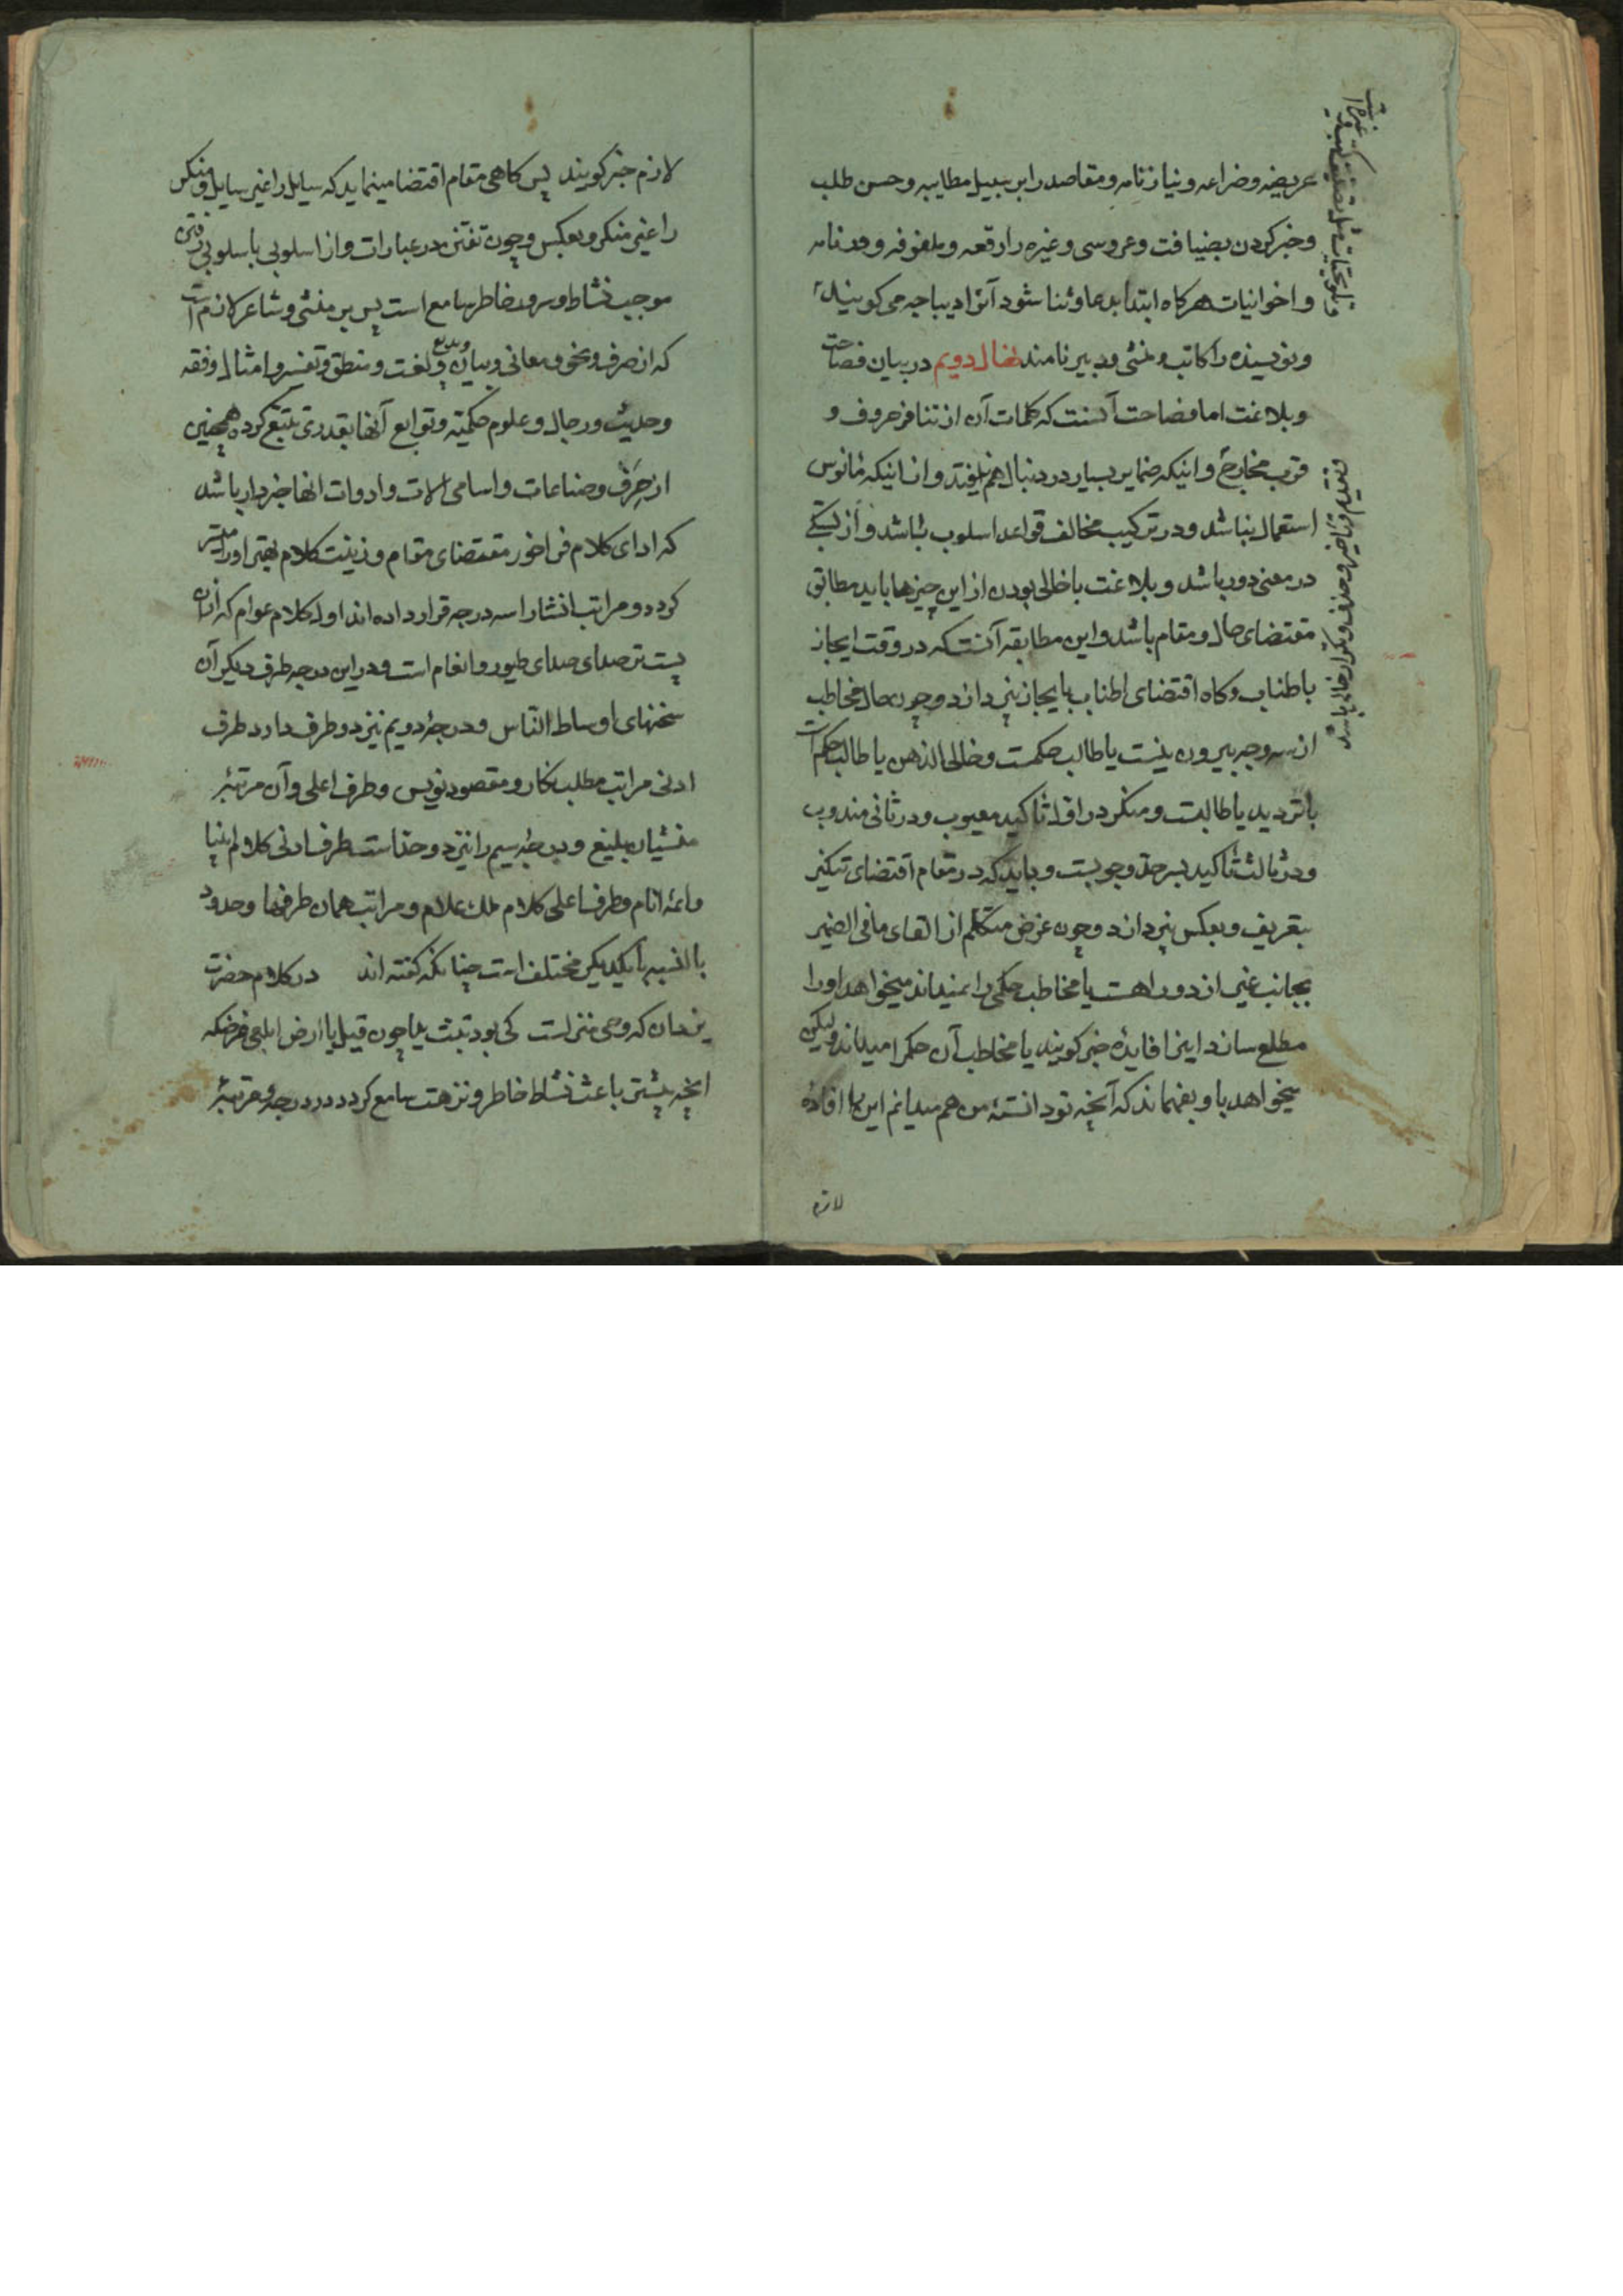 عریضه و ضراعه و نیازنامه و مقاصد را بر سبیل مطایبه و حسن طلب
و خبر کردن بضیافت و عروسی و غیره را رقعه و ملفوفه و قدنامه
و اخوانیات هرکاه ابتدا بدعا و ثنا شود آنرا دیباجه می کویند
و نویسنده را کاتب و منشی و دبیر نامند نضال دویم در بیان فصاحت
و بلاغت اما فصاحت آنست که کلمات آن از تنافر حروف و
قرب مخارج و اینکه ضمایر بسیار در دنبال هم نیفتد و از اینکه نامانوس
استعمال نباشد و در ترکیب مخالف قواعد اسلوب نباشد و از بستکی
در معنی دور باشد و بلاغت با خالی بودن از این چیزها باید مطابق
مقتضای حال و مقام باشد و این مطابقه آنست که در وقت ایجاز
باطناب و کاه اقتضای اطناب بایجاز نپردازد و چون حال مخاطب
از سه وجه بیرون نیست یا طالب حکمست و خالی الذهن یا طالب حکم است
با تردید یا طالبست و منکر در اول تاکید معیوب و در ثانی مندوب
و در ثالث تاکید بسر حد وجوبست و باید که در مقام اقتضای تنکیر
بتعریف و بعکس نپردازد و چون غرض متکلم از القای ما فی الضمیر
بجانب غیر از دو راهست یا مخاطب حکمی را نمیداند میخواهد او را
مطلع سازد اینرا فایدهٔ خبر کویند یا مخاطب آن حکم را میداند ولیکن
میخواهد باو بفهماند که آنچه تو دانستهٔ من هم میدانم این را افادهٔ
لازم
و تقدیم و تاخیر و حذف و تکرار خالی باشد
لازم خبر کویند پس کاهی مقام اقتضا مینماید که سایل را غیر سایل و منکر
را غیر منکر و بعکس و چون تفنن در عبارات و از اسلوبی باسلوبی رفتن
موجب نشاط و سرور خاطر سامع است پس بر منشی و شاعر لازم است
که از صرف و نحو و معانی و بیان و بدیع و لغت و منطق و تفسیر و امثال و فقه
و حدیث و رجال و علوم حکمیّه و توابع آنها بقدری تتبع کرده همچنین
از حِرَف و صناعات و اسامی آلات و ادوات انها خبردار باشد
که ادای کلام فراخور مقتضای مقام و زینت کلام بهتر او را میسر
کردد و مراتب انشا را سه درجه قرار داده اند اول کلام عوام که از ان
پست تر صدای صدای طیور و انغام است و در این درجه طرف دیکر آن
سخنهای اوساط النّاس و درجهٔ دویم نیز دو طرف دارد طرف
ادنی مراتب مطلب نکار و مقصود نویس و طرف اعلی و آن مرتبهٔ
منشیان بلیغ و درجهٔ سیم را نیز دو حد است طرف ادنی کلام انبیا
و ائمه انام و طرف اعلی کلام ملک علام و مراتب همان طرفها و حدود
بالنسبه با یکدیکر مختلف است چنانکه کفته اند در کلام حضرت
یزدان که وحی منزلست کی بود تبّت یدا چون قیل یا ارض ابلعی غرضکه
انچه بیشتر باعث نشاط خاطر و نزهت سامع کردد در درجه و مرتبهٔ